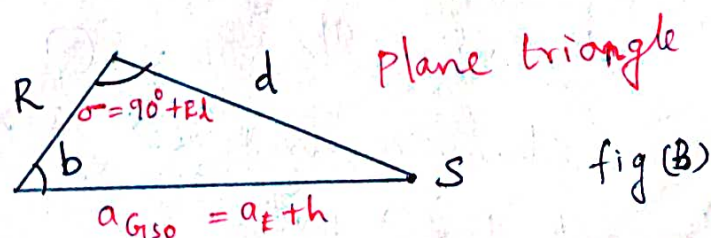 Plane triangle
R
d
σ = 90° + El
b
S
fig (B)
a GSO = a E + h